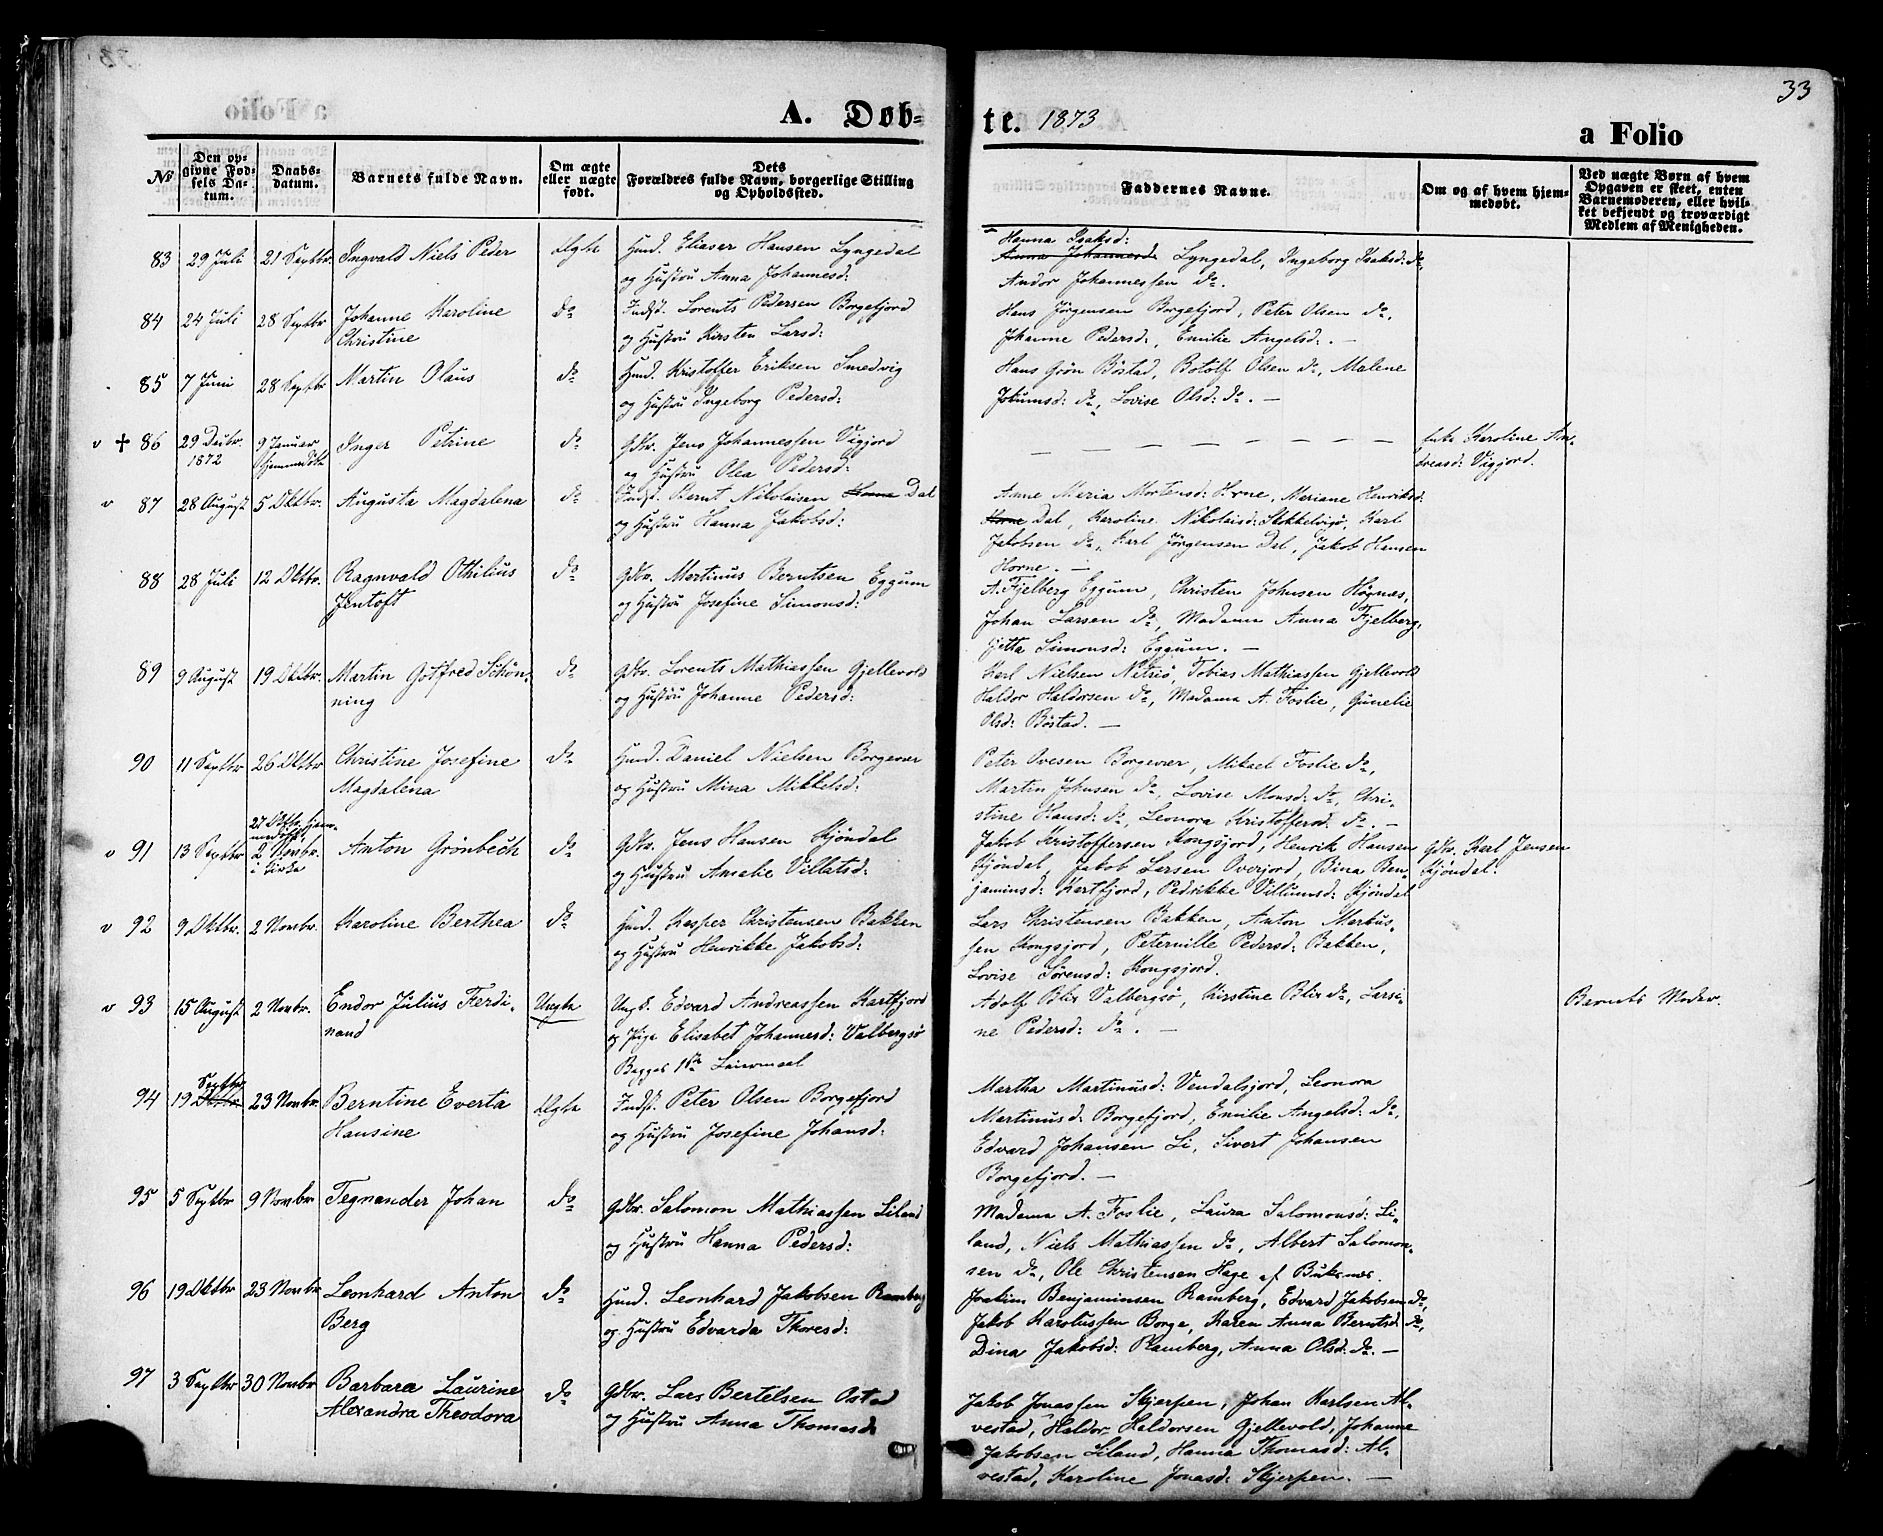 33
A. Døb-
te. 1873
a Folio
No
Den op-
givne Fød-
sels Da-
tum.
Daabs-
datum.
Barnets fulde Navn.
Om ægte
eller uægte
født.
Dets
Forældres fulde Navn, borgerlige Stilling
og Opholdssted.
Faddernes Navne.
Om og af hvem hjem-
medøbt.
Ved uægte Børn af hvem
Opgaven er skeet, enten
Barnemoderen, eller hvil-
ket bekjendt og troværdigt
Medlem af Menigheden.
83 29 Juli 21 Septbr. Ingvald Niels Peder Ægte Huusm. Eliaser Hansen Lyngedal
og Hustru Anna Johannesd:
Hanna Isaksd:
Anna Johannesd. Lyngedal, Ingeborg Isaksd: do,
Andor Johannessen do.
84 24 Juli 28 Septbr Johanne Karoline
Christine
do Indst. Lorents Pedersen Borgefjord
og Hustru Kirsten Larsd:
Hans Jörgensen Borgefjord, Peter Olsen do,
Johanne Pedersd:, Emilie Angelsd:. —
85 7 Juni 28 Septbr Martin Olaus do Huusm. Kristoffer Eriksen Smedvig
og Hustru Ingeborg Pedersd:
Hans Grön Böstad, Botolf Olsen do, Malene
Jokumsd: do, Lovise Olsd: do. —
v + 86 29 Decbr.
1872
9 Januar
hjemmedöbt
Inger Petrine do Gdbr. Jens Johannessen Vigjord
og Hustru Olea Pedersd:
— — — — — — —
Enke Karoline An-
dreasd: Vigjord.
v 87 28 August 5 Oktbr. Augusta Magdalena do Indst. Bernt Nikolaisen Horne Dal
og Hustru Hanna Jakobsd:
Anne Maria Mortensd: Horne, Mariane Henriksd:
Horne Dal, Karoline Nikolaisd: Stokkelvigö, Karl
Jakobsen do, Karl Jörgensen Dal, Jakob Hansen
Horne. —
88 28 Juli 12 Oktbr. Ragnvald Othilius
Jentoft
do Gdbr. Martinus Berntsen Eggum
og Hustru Josefine Simonsd:
A. Fjelberg Eggum, Christen Johnsen Högnæs,
Johan Larsen do, Madame Anna Fjelberg,
Jetta Simonsd: Eggum. —
89 9 August 19 Oktbr. Martin Gotfred Schön-
ning
do Gdbr. Lorents Mathiassen Gjellevold
og Hustru Johanne Pedersd:
Karl Nielsen Netsiö, Tobias Mathiassen Gjellevold
Haldor Haldorsen do, Madame A. Foslie, Gunelie
Olsd: Böstad. —
90 11 Septbr 26 Oktbr Christine Josefine
Magdalena
do Huusm. Daniel Nielsen Borgevær
og Hustru Mina Mikkelsd:
Peter Ovesen Borgevær, Mikael Foslie do,
Martin Johnsen do, Lovise Monsd: do, Chri-
stine Hansd: do, Leonora Kristoffersd. do. —
v 91 13 Septbr 27 Oktbr. hjem-
medöbt
2 Novbr.
i Kirke
Anton Grönbech do Gdbr. Jens Hansen Kjöndal
og Hustru Amalie Villatsd:
Jakob Kristoffersen Kongsjord, Henrik Hansen
Kjöndal, Jakob Larsen Överjord, Bina Ben-
jaminsd: Kartfjord, Pedrikke Villumsd: Kjöndal
Gdbr. Karl Jensen
Kjöndal.
v 92 9 Oktbr. 2 Novbr. Karoline Berthea do Huusm. Kasper Christensen Bakken
og Hustru Henrikke Jakobsd:
Lars Christensen Bakken, Anton Markus-
sen Kongsjord, Peterville Pedersd: Bakken,
Lovise Sörensd: Kongsjord.
v 93 15 August 2 Novbr. Endor Julius Ferdi-
nand
Uægte Ungk. Edvard Andreassen Kartfjord
og Pige Elisabet Johannesd: Valbergsö
Begges 1ste Leiermaal
Adolf Blix Valbergsö, Kirstine Blix do, Larsi-
ne Pedersd: do. —
Barnets Moder.
94 19 Oktbr Septbr 23 Novbr. Berntine Everta
Hansine
Ægte Indst. Peter Olsen Borgefjord
og Hustru Josefine Johansd:
Martha Martinusd: Vendalsjord, Leonora
Martinusd: Borgefjord, Emilie Angelsd: do,
Edvard Johansen Li, Sivert Johansen
Borgefjord. —
95 5 Septbr 9 Novbr. Tegnander Johan do Gdbr. Salomon Mathiassen Liland
og Hustru Hanna Pedersd:
Madame A. Foslie, Laura Salomonsd: Li-
land, Niels Mathiassen do, Albert Salomon-
sen do, Ole Christensen Hage af Buksnæs.
96 19 Oktbr 23 Novbr Leonhard Anton
Berg
do Huusm. Leonhard Jakobsen Ramberg
og Hustru Edvarda Thoresd:
Joakim Benjaminsen Ramberg, Edvard Jakobsen do,
Jakob Karolussen Borge, Karen Anna Berntsd: do,
Dina Jakobsd: Ramberg, Anna Olsd: do. —
97 3 Septbr 30 Novbr Barbara Laurine
Alexandra Theodora
do Gdbr. Lars Bertelsen Ostad
og Hustru Anna Thomasd:
Jakob Jonassen Skjerpen, Johan Karlsen Al-
vestad, Haldor Haldorsen Gjellevold, Johanne
Jakobsen Liland, Hanna Thomasd: Al-
vestad, Karoline Jonasd: Skjerpen. —